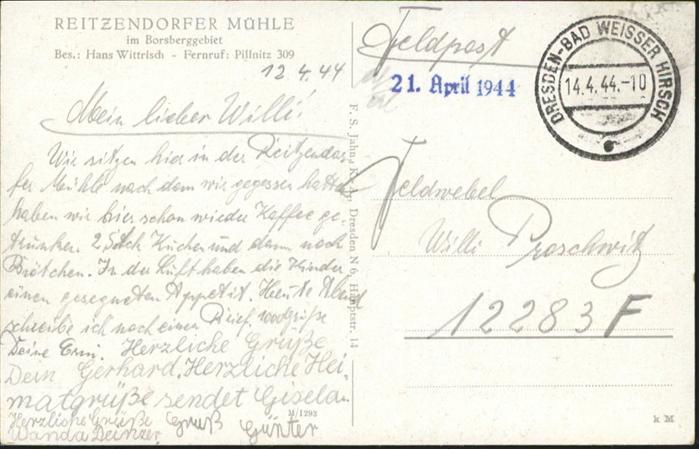 REITZENDORFER MÜHLE
im Borsberggebiet
Bes.: Hans Wittrisch - Fernruf: Pillnitz 309
12.4.44
Mein lieber Willi!
Wir sitzen hier in der Reitzendor
fer Mühle nach dem wir gegessen hatten
haben wir hier schon wieder Kaffee ge
trunken. 2 Stck Kuchen und dann noch
Brötchen. In der Luft haben die Kinder
einen gesegneten Appetit. Heute Abend
schreibe ich noch einen Brief. 1000 Grüße
Deine Erni. Herzliche Grüße
Dein Gerhard. Herzliche Hei-
matgrüße sendet Gisela
Herzliche Grüße Gruß Günter
Wanda
M/1293
F. S. Jahn, Dresden N 6, Hauptstr. 14
Feldpost
21. April 1944
DRESDEN-BAD WEISSER HIRSCH
14.4.44.-10
Feldwebel
Willi Proschwitz
12283 F
k M